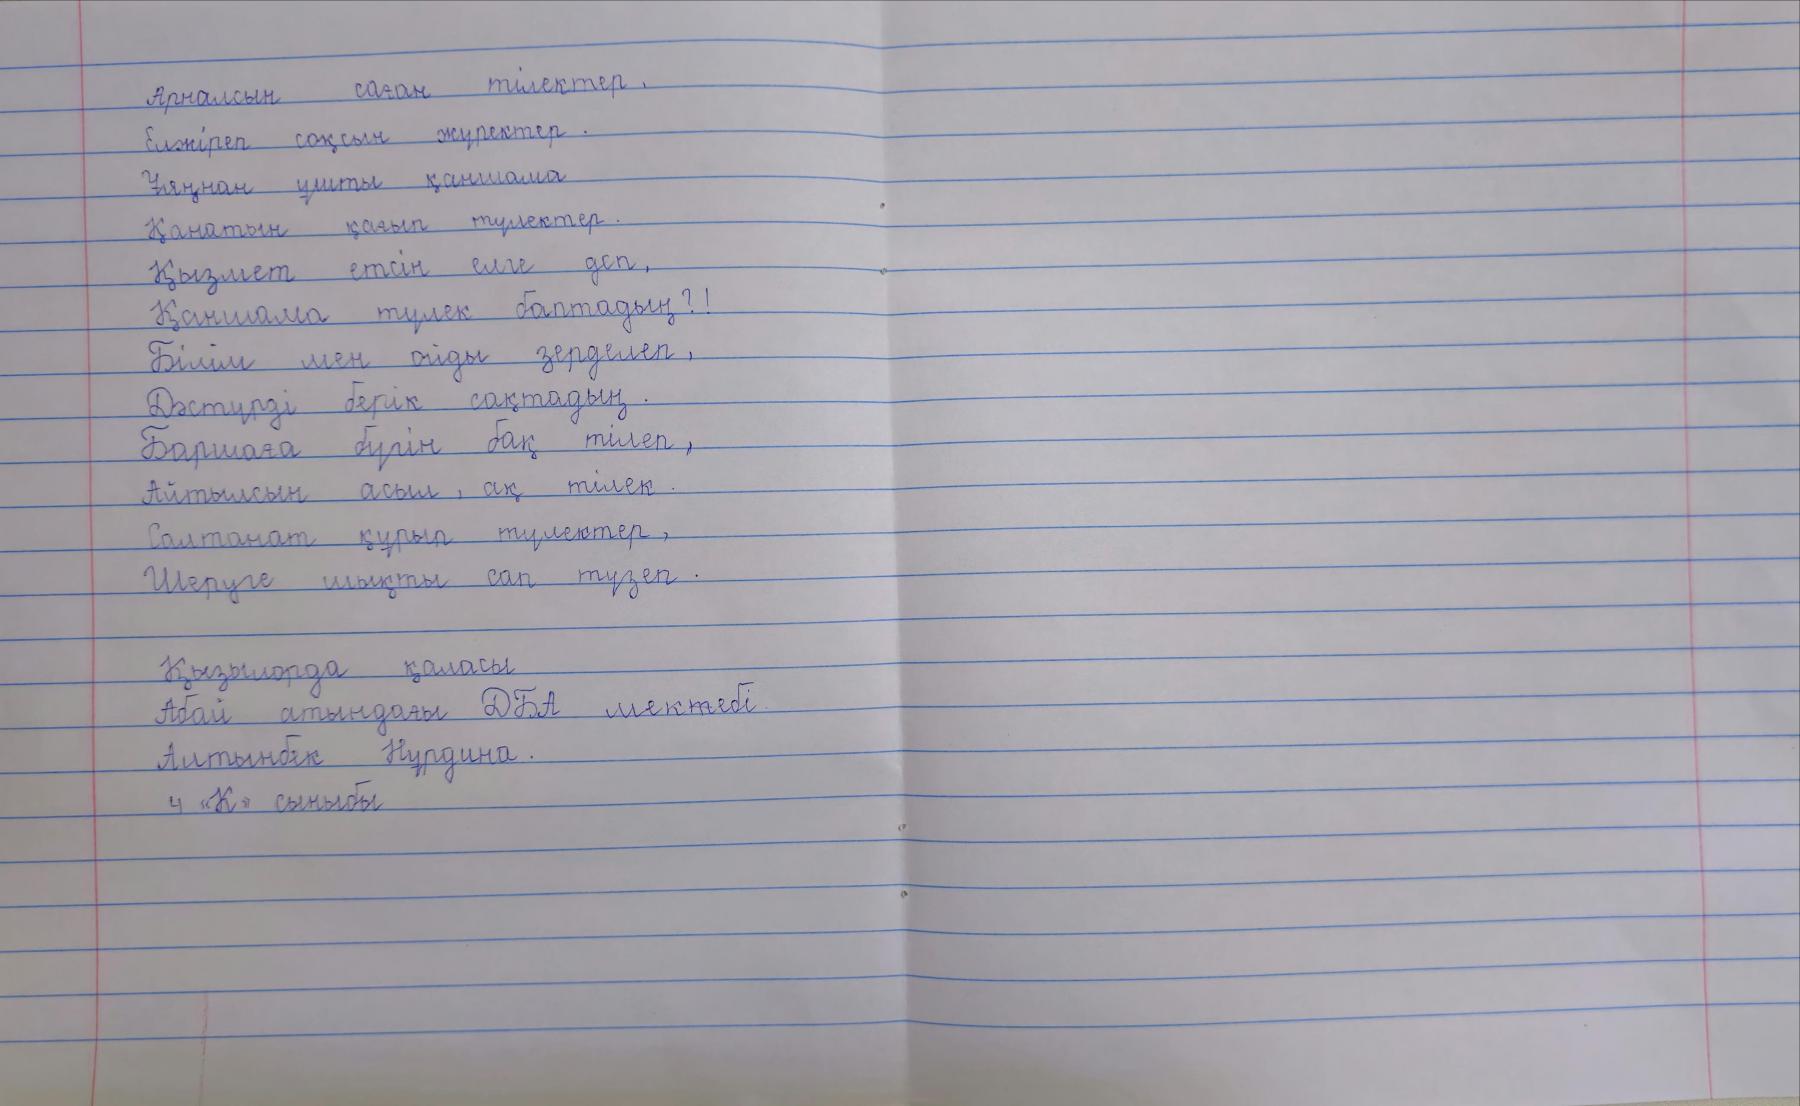 Арналсын саған тілектер,
Елжіреп соқсын жүректер.
Ұяңнан ұшты қаншама
Қанатын қағып түлектер.
Қызмет етсін елге деп,
Қаншама түлек баптадың?!
Білім мен ойды зерделеп,
Дәстүрді берік сақтадың.
Баршаға бүгін бақ тілеп,
Айтылсын асыл, ақ тілек.
Салтанат құрып түлектер,
Шеруге шықты сап түзеп.
Қызылорда қаласы
Абай атындағы ДБА мектебі
Алтынбек Нұрдина.
4 «К» сыныбы